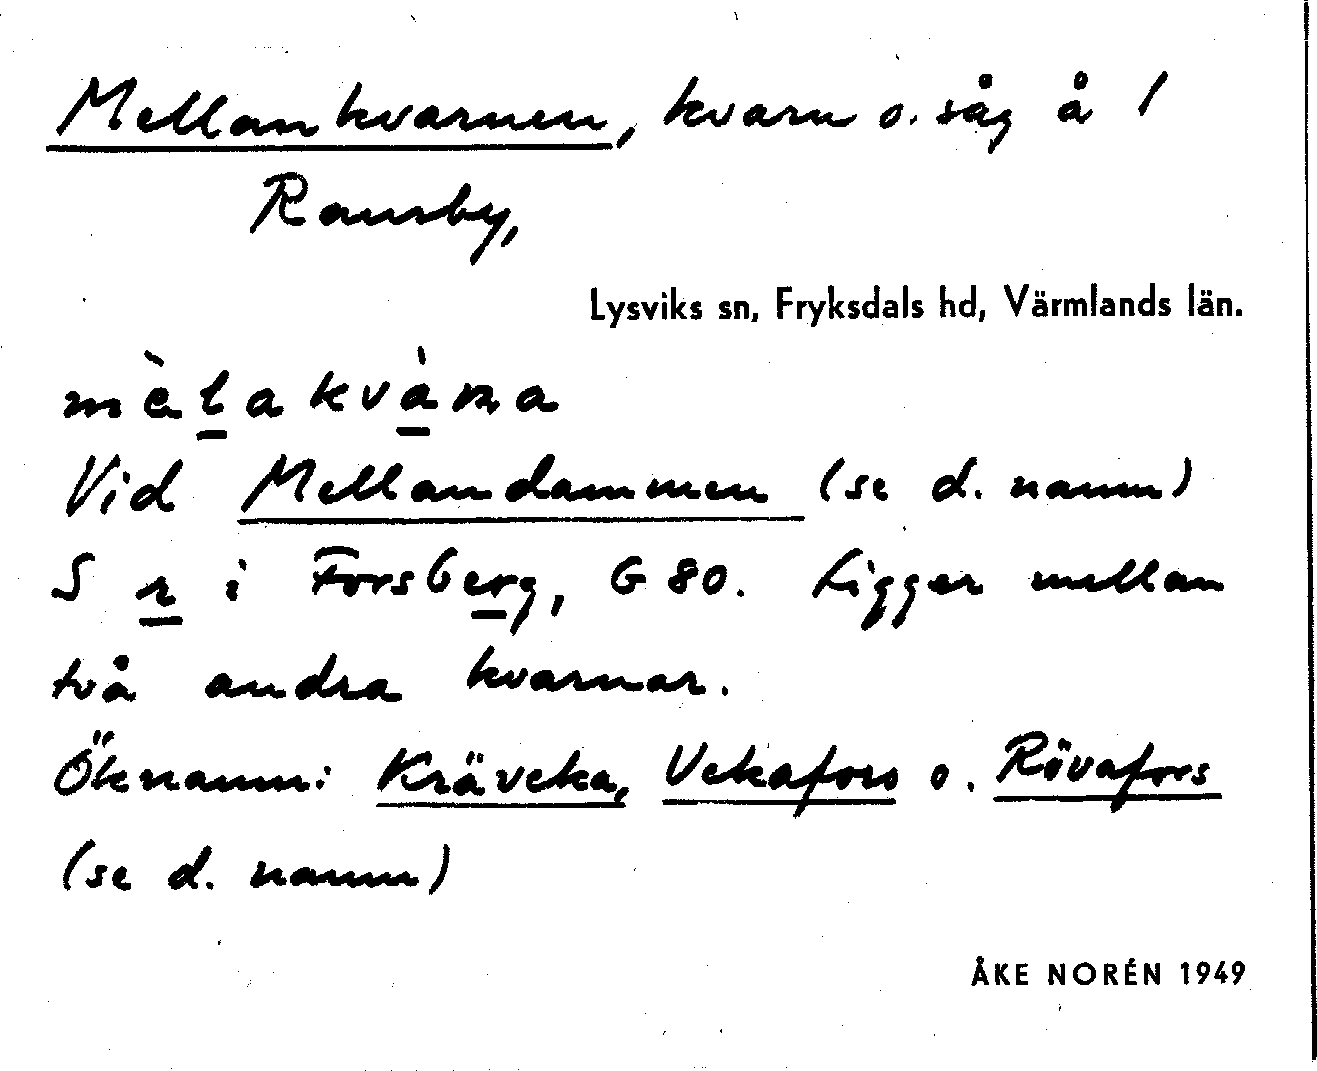 Mellankvarnen, kvarn o. såg å 1
Ransby,
Lysviks sn, Fryksdals hd, Värmlands län.
mèlakvàna
Vid Mellandammen (se d. namn)
S r i Forsberg, G 80. Ligger mellan
två andra kvarnar.
Öknamn: Kräveka, Vekafors o. Rövafors
(se d. namn)
ÅKE NORÉN 1949